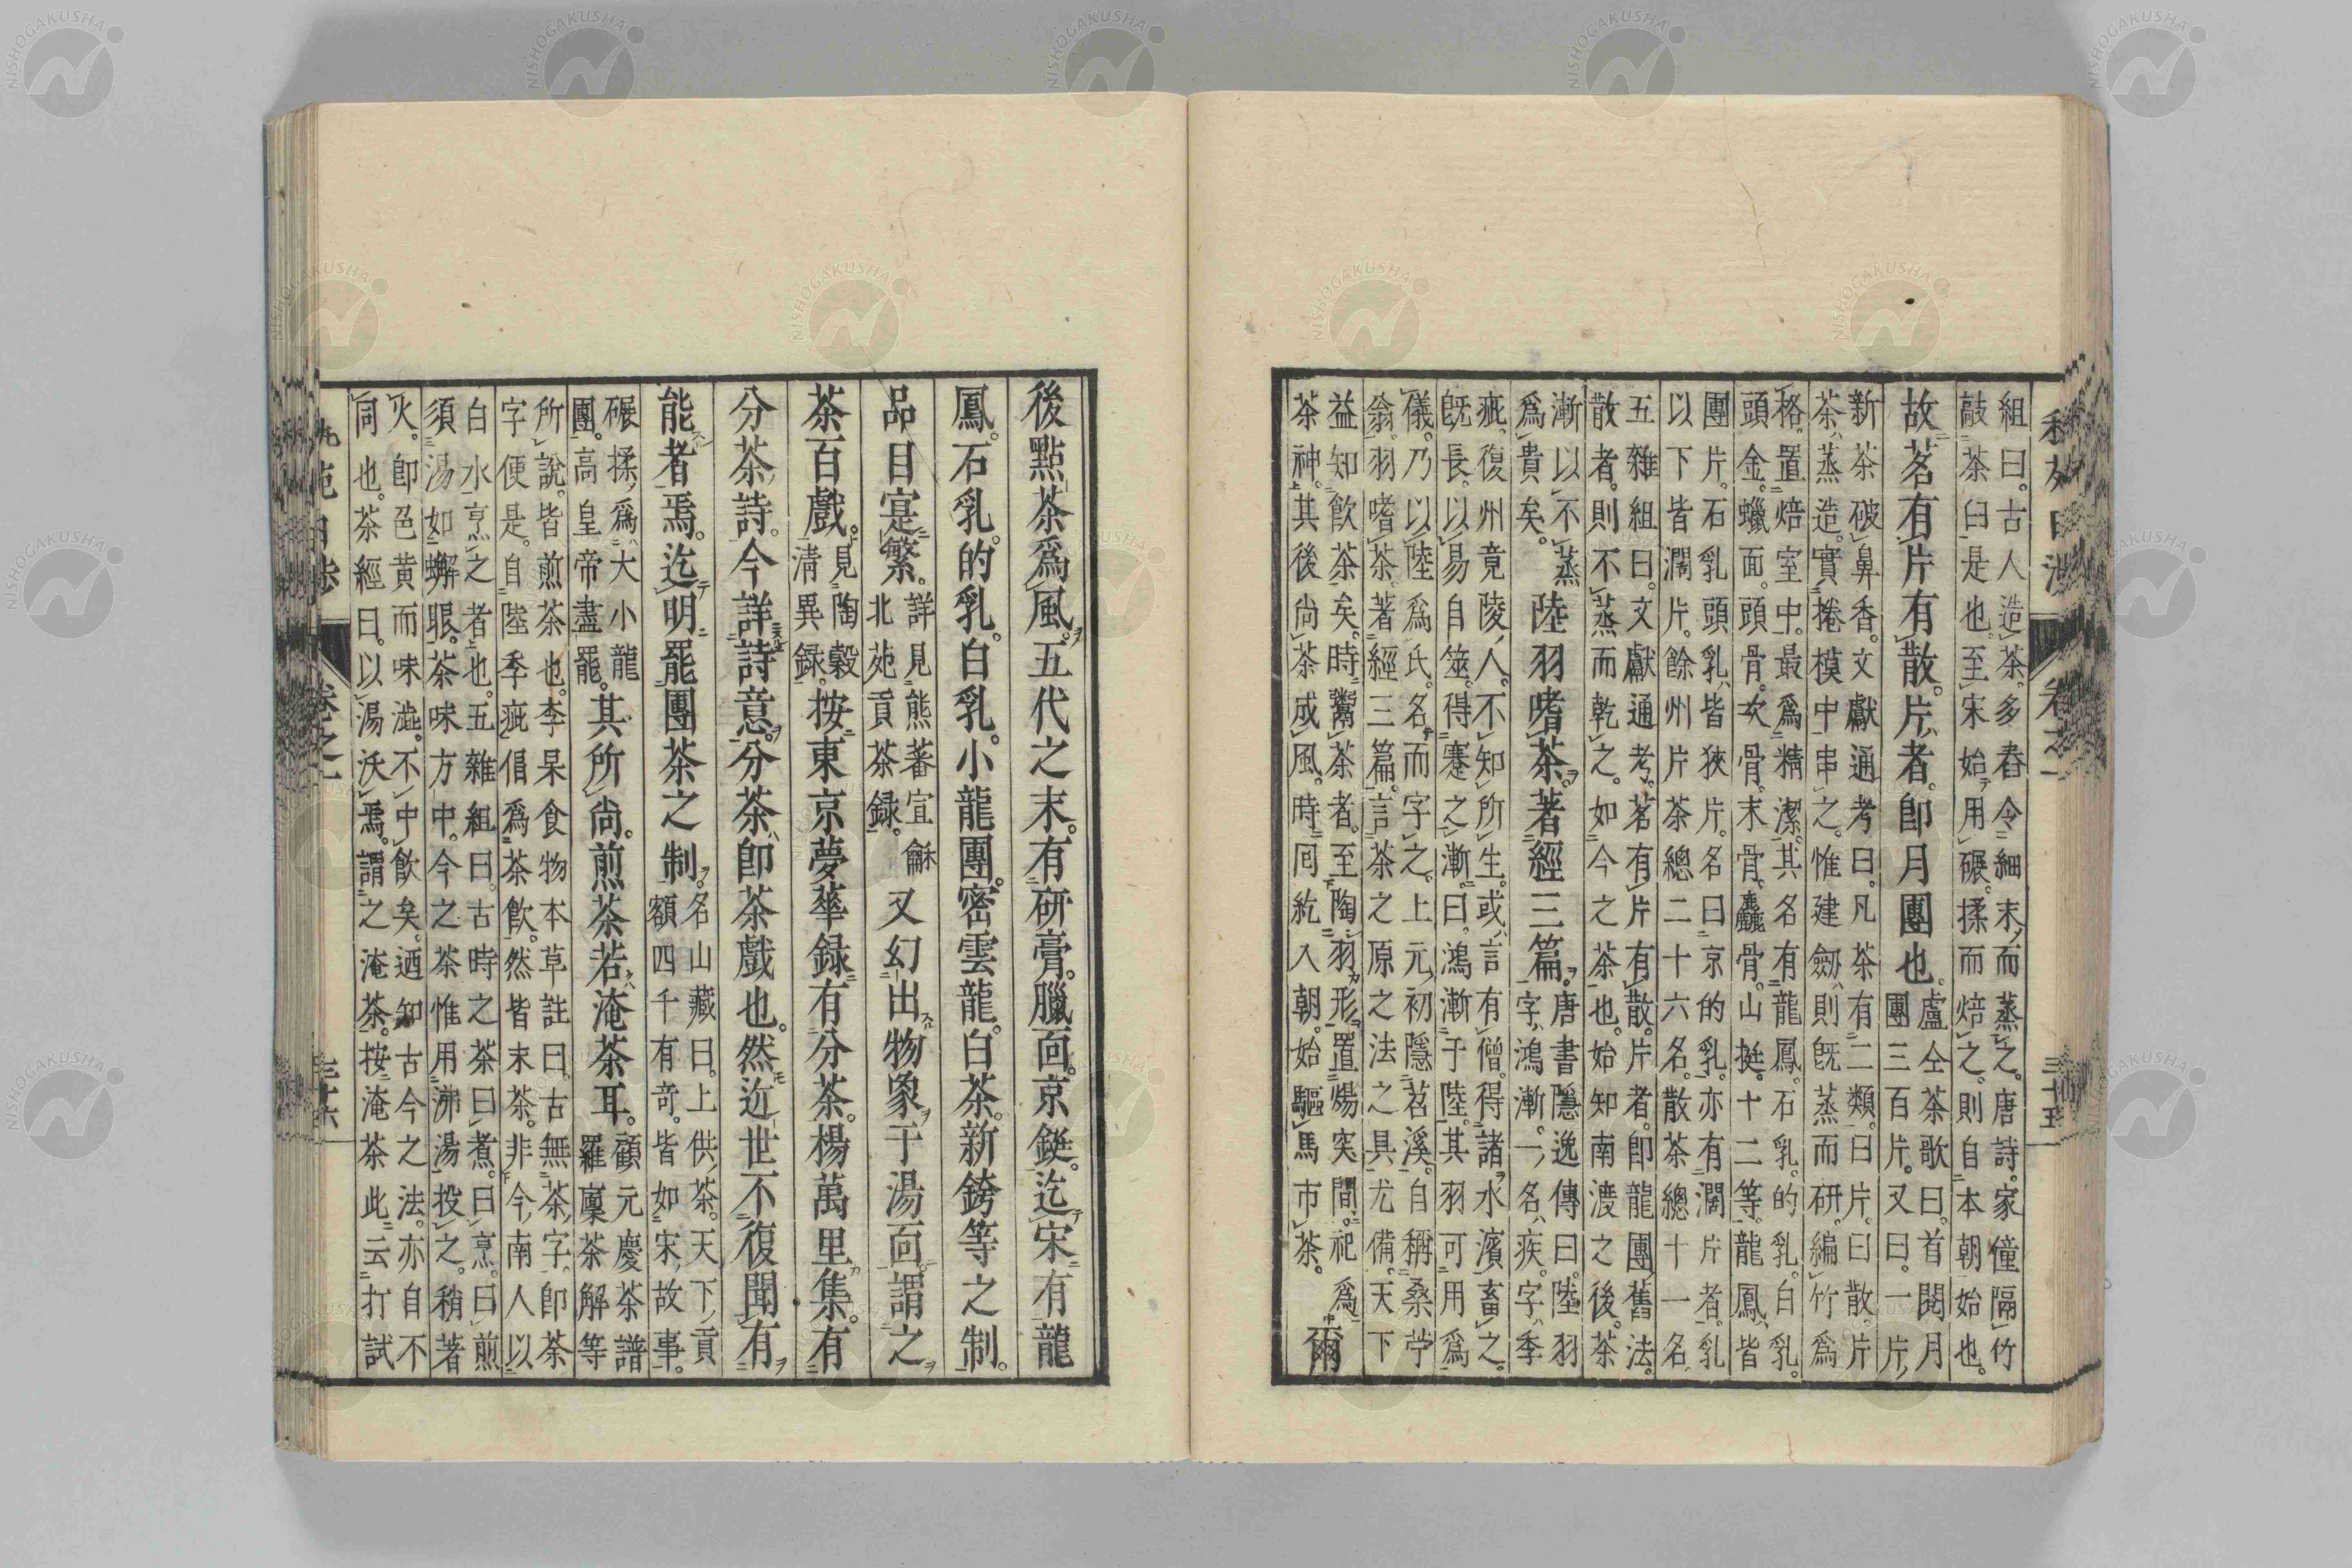 組曰。古人造茶。多舂令細末而蒸之。唐詩。家僮隔竹
敲茶臼是也。至宋始用碾。揉而焙之。則自本朝始也。
故茗有片有散。片者。即月團也。
盧仝茶歌曰。首閱月
團三百片。又曰。一片
新茶破鼻香。文獻通考曰。凡茶有二類。曰片。曰散。片
茶蒸造。實捲模中串之。惟建劔則既蒸而研。編竹爲
格。置焙室中。最爲精潔。其名有龍鳳。石乳。的乳。白乳。
頭金。蠟面。頭骨。次骨。末骨。麤骨。山挺。十二等。龍鳳皆
團片。石乳頭乳皆狹片。名曰京的乳。亦有濶片者。乳
以下皆濶片。餘州片茶總二十六名。散茶總十一名
五雜組曰。文獻通考。茗有片有散。片者。即龍團舊法。
散者。則不蒸而乾之。如今之茶也。始知南渡之後。茶
漸以不蒸
爲貴矣。
陸羽嗜茶。著經三篇。
唐書隱逸傳曰。陸羽
字鴻漸。一名疾。字季
疵。復州竟陵人。不知所生。或言有僧得諸水濱畜之。
既長。以易自筮。得蹇之漸。曰鴻漸于陸。其羽可用爲
儀。乃以陸爲氏。名而字之。上元初隱苕溪。自稱桑苧
翁。羽嗜茶。著經三篇。言茶之原之法之具尤備。天下
益知飲茶矣。時鬻茶者。至陶羽形。置煬突間。祀爲
茶神。其後尚茶成風。時回紇入朝。始驅馬市茶。
爾
後點茶爲風。五代之末。有研膏。臘面。京鋌。迄宋有龍
鳳。石乳。的乳。白乳。小龍團。密雲龍。白茶。新銙等之制。
品目寔繁。
詳見熊蕃宣龢
北苑貢茶録。
又幻出物象于湯面。謂之
茶百戲。
見陶穀
清異録。
按東京夢華録。有分茶。楊萬里集。有
分茶詩。今詳詩意。分茶即茶戲也。然近世不復聞有
能者焉。迄明罷團茶之制。
名山藏曰。上供茶。天下貢
額四千有奇。皆如宋故事。
碾揉爲大小龍
團。高皇帝盡罷。
其所尚。煎茶若淹茶耳。
顧元慶茶譜
羅廩茶解等
所説。皆煎茶也。李杲食物本草註曰。古無茶字。即茶
字便是。自陸季疵倡爲茶飲。然皆末茶。非今南人以
白水烹之者也。五雜組曰。古時之茶曰煮。曰烹。曰煎
須湯如蠏眼。茶味方中。今之茶惟用沸湯投之。稍著
火。即色黄而味澁。不中飲矣。迺知古今之法。亦自不
同也。茶經曰。以湯沃焉。謂之淹茶。按淹茶此云打試